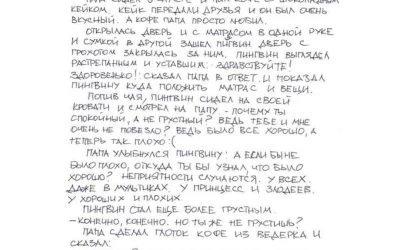 ПАПА СИДЕЛ В КАМЕРЕ И ПИЛ КОФЕ С ШОКОЛАДНЫМ
КЕЙКОМ. КЕЙК ПЕРЕДАЛИ ДРУЗЬЯ И ОН БЫЛ ОЧЕНЬ
ВКУСНЫЙ. А КОФЕ ПАПА ПРОСТО ЛЮБИЛ.
ОТКРЫЛАСЬ ДВЕРЬ И С МАТРАСОМ В ОДНОЙ РУКЕ
И СУМКОЙ В ДРУГОЙ ЗАШЕЛ ПИНГВИН. ДВЕРЬ С
ГРОХОТОМ ЗАКРЫЛАСЬ ЗА НИМ. ПИНГВИН ВЫГЛЯДЕЛ
РАСТРЕПАННЫМ И УСТАВШИМ. ЗДРАВСТВУЙТЕ!
ЗДОРОВЕНЬКО! СКАЗАЛ ПАПА В ОТВЕТ. И ПОКАЗАЛ
ПИНГВИНУ КУДА ПОЛОЖИТЬ МАТРАС И ВЕЩИ.
ПОПИВ ЧАЯ, ПИНГВИН СИДЕЛ НА СВОЕЙ
КРОВАТИ И СМОТРЕЛ НА ПАПУ - ПОЧЕМУ ТЫ
СПОКОЙНЫЙ, А НЕ ГРУСТНЫЙ? ВЕДЬ ТЕБЕ И МНЕ
ОЧЕНЬ НЕ ПОВЕЗЛО? ВЕДЬ БЫЛО ВСЕ ХОРОШО, А
ТЕПЕРЬ ТАК ПЛОХО :(
ПАПА УЛЫБНУЛСЯ ПИНГВИНУ: А ЕСЛИ БЫ НЕ
БЫЛО ПЛОХО, ОТКУДА ТЫ БЫ УЗНАЛ, ЧТО БЫЛО
ХОРОШО? НЕПРИЯТНОСТИ СЛУЧАЮТСЯ. У ВСЕХ.
ДАЖЕ В МУЛЬТИКАХ. У ПРИНЦЕСС И ЗЛОДЕЕВ.
У ХОРОШИХ И ПЛОХИХ.
ПИНГВИН СТАЛ ЕЩЕ БОЛЕЕ ГРУСТНЫМ.
-КОНЕЧНО, КОНЕЧНО. НО ТЫ ЖЕ НЕ ГРУСТИШЬ?
ПАПА СДЕЛАЛ ГЛОТОК КОФЕ ИЗ ВЕДЕРКА И
СКАЗАЛ: